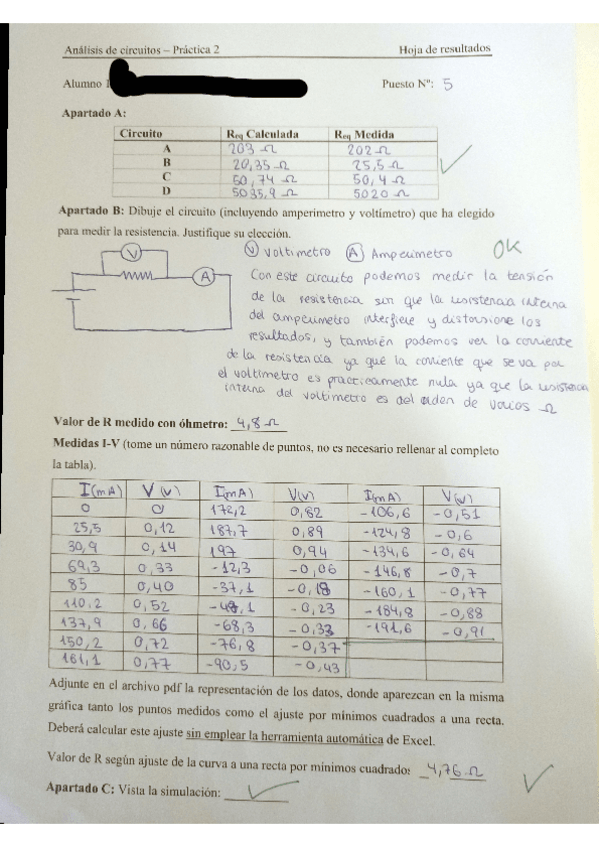 Análisis de circuitos – Práctica 2 Hoja de resultados
Alumno Puesto Nº: 5
Apartado A:
Circuito Req Calculada Req Medida
A 203 Ω 202 Ω
B 20,35 Ω 25,5 Ω
C 50,74 Ω 50,4 Ω
D 5035,9 Ω 5020 Ω
Apartado B: Dibuje el circuito (incluyendo amperímetro y voltímetro) que ha elegido
para medir la resistencia. Justifique su elección.
V Voltimetro A Amperimetro OK
V
A
Con este circuito podemos medir la tensión
de la resistencia sin que la resistencia interna
del amperimetro interfiere y distorsione los
resultados, y también podemos ver la corriente
de la resistencia ya que la corriente que se va por
el voltimetro es practicamente nula ya que la resistencia
interna del voltimetro es del orden de varios Ω
Valor de R medido con óhmetro: 4,8 Ω
Medidas I-V (tome un número razonable de puntos, no es necesario rellenar al completo
la tabla).
I(mA) V (V) I(mA) V(V) I(mA) V(V)
0 0 172,2 0,82 -106,6 -0,51
25,5 0,12 187,7 0,89 -124,8 -0,6
30,9 0,14 197 0,94 -134,6 -0,64
69,3 0,33 -12,3 -0,06 -146,8 -0,7
85 0,40 -37,1 -0,18 -160,1 -0,77
110,2 0,52 -48,1 -0,23 -184,8 -0,88
137,9 0,66 -68,3 -0,33 -191,6 -0,91
150,2 0,72 -76,8 -0,37
161,1 0,77 -90,5 -0,43
Adjunte en el archivo pdf la representación de los datos, donde aparezcan en la misma
gráfica tanto los puntos medidos como el ajuste por mínimos cuadrados a una recta.
Deberá calcular este ajuste sin emplear la herramienta automática de Excel.
Valor de R según ajuste de la curva a una recta por mínimos cuadrado: 4,76 Ω
Apartado C: Vista la simulación: